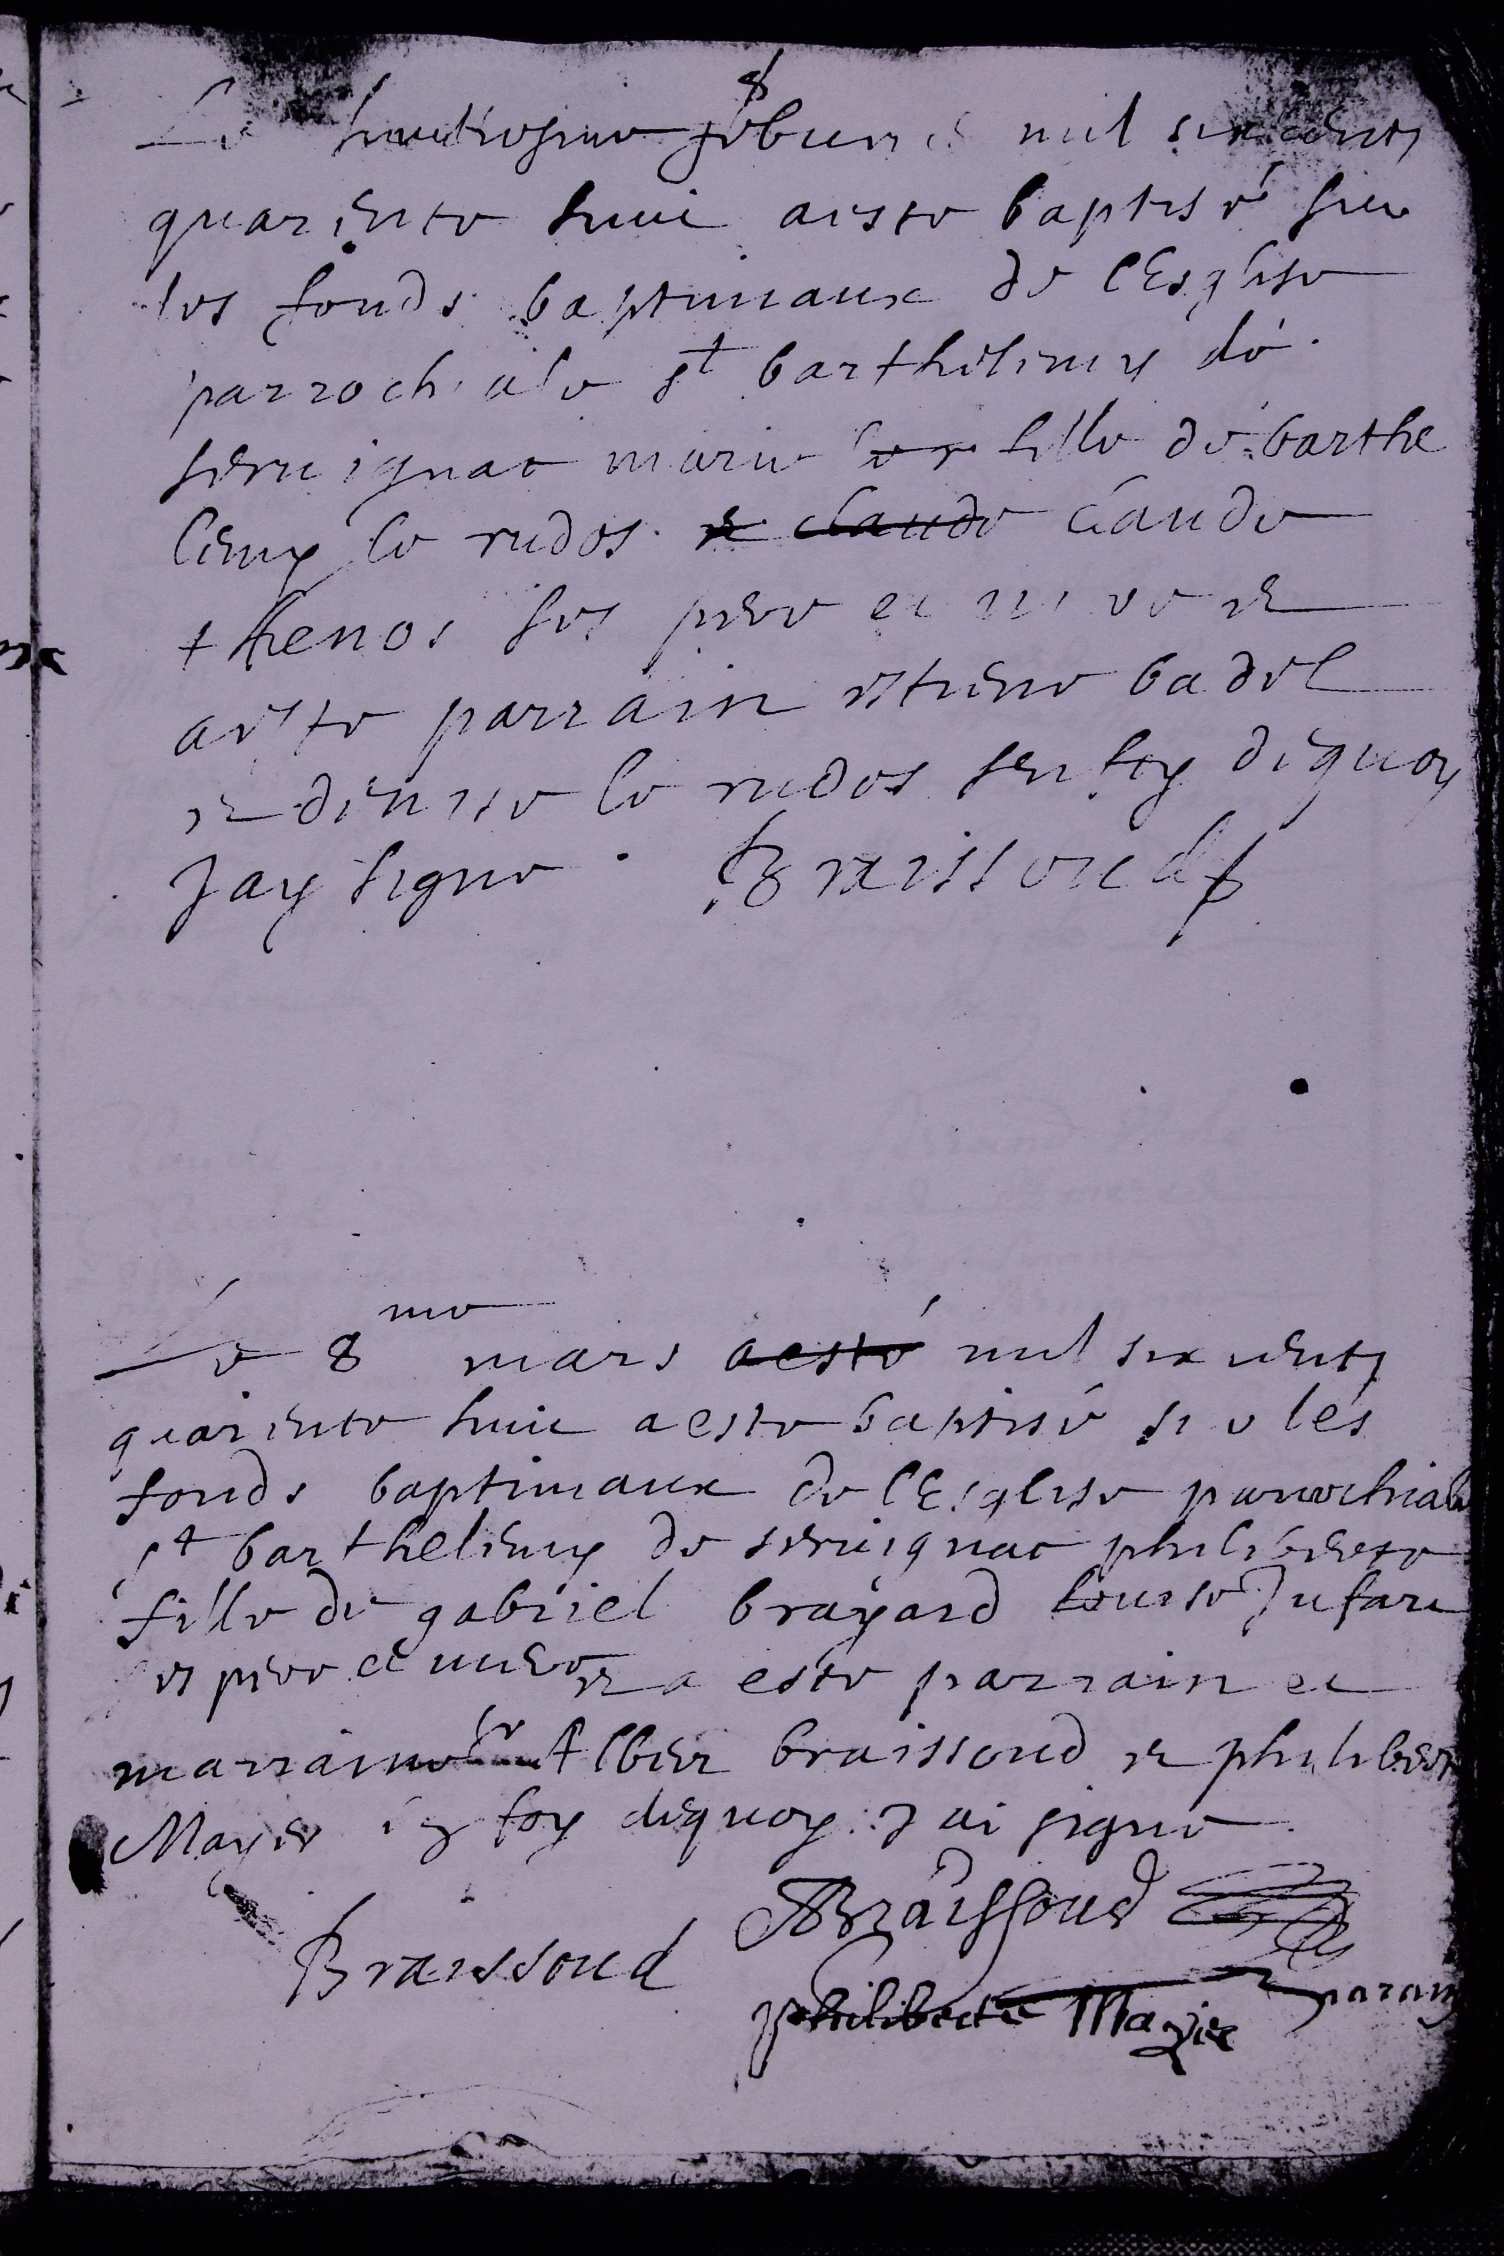 Le huictiesme febvrie 8 mil six cents
quarente huic aeste baptisé sur
les fonds baptimaux de l'Esglise
parrochiale st barthelemy de
servignac marie fille de barthe
lemy le rudos claude claude
thenos ses pere et mere et
a este parrain estiene badel
et denise le rudos en foy dequoy
Jay signe. Braissoud
Le 8me mars aesté mil six cents
quarente huic aeste baptisé sur les
fonds baptimaux de l'Esglise parrochiale
st barthelemy de servignac philiberte
fille de gabriel brayard louise Jufare
ses pere et mere et a este parrain et
marraine Alber braissoud et philiber
Mayer en foy dequoy J ai signe
ABraissoud
Braissoud
philiberte Mayer parain